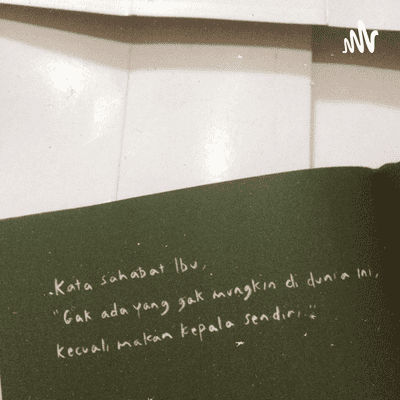 Kata sahabat Ibu,
"Gak ada yang gak mungkin di dunia ini,
kecuali makan kepala sendiri."